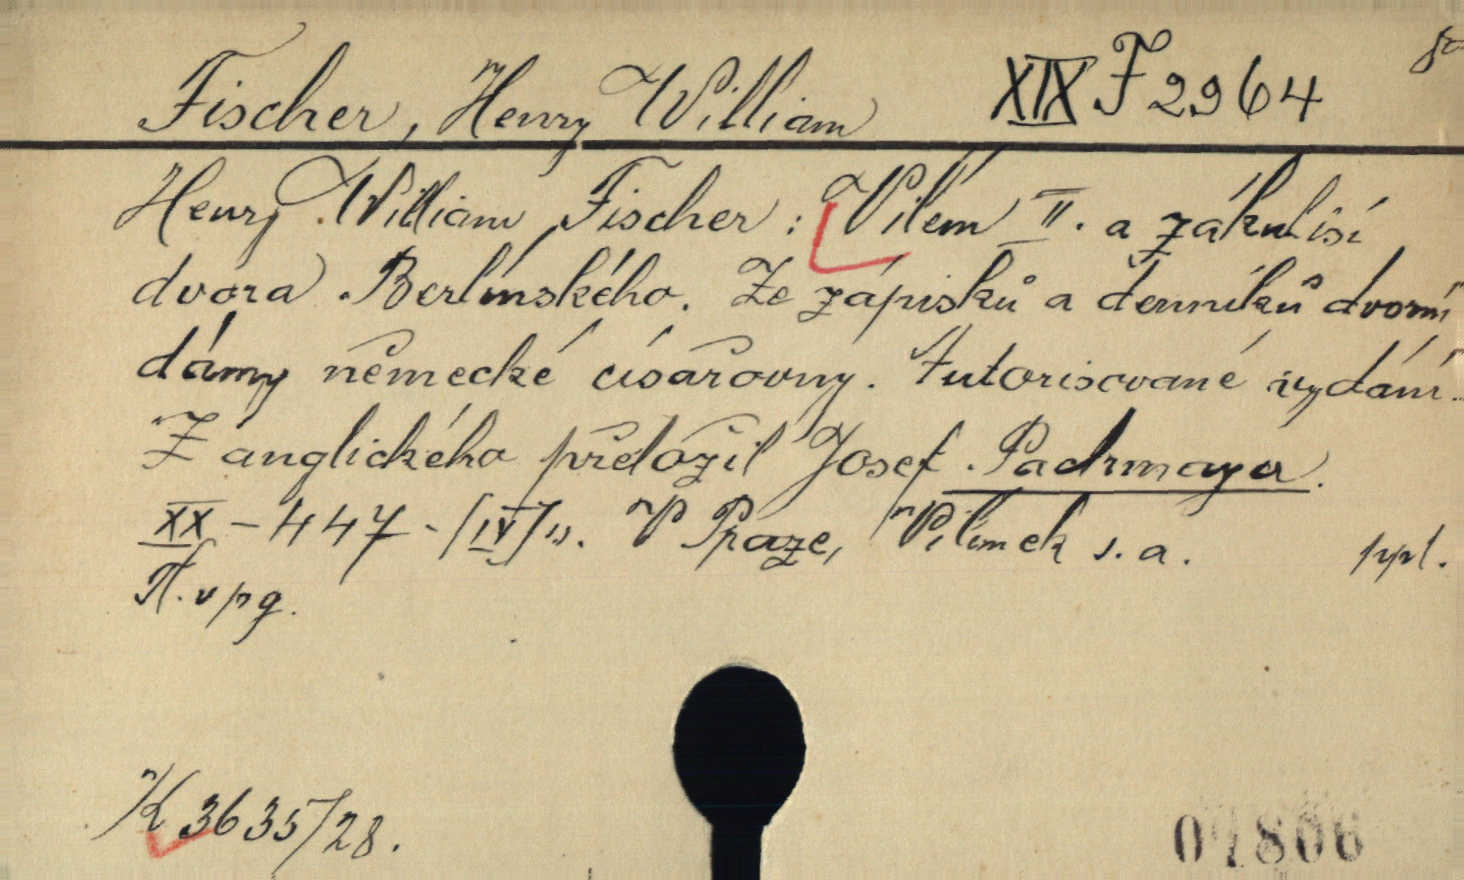 Fischer, Henry William XIX F 2964 8º
Henry William Fischer: Vilém II. a zákulisí
dvora Berlínského. Ze zápisků a denníků dvorní
dámy německé císařovny. Autorisované vydání.
Z anglického přeložil Josef Pachmayer.
XX - 447 - [IV] s. V Praze, Vilímek s. a. ppl.
Pl. v pg.
K 3635/28.
07806